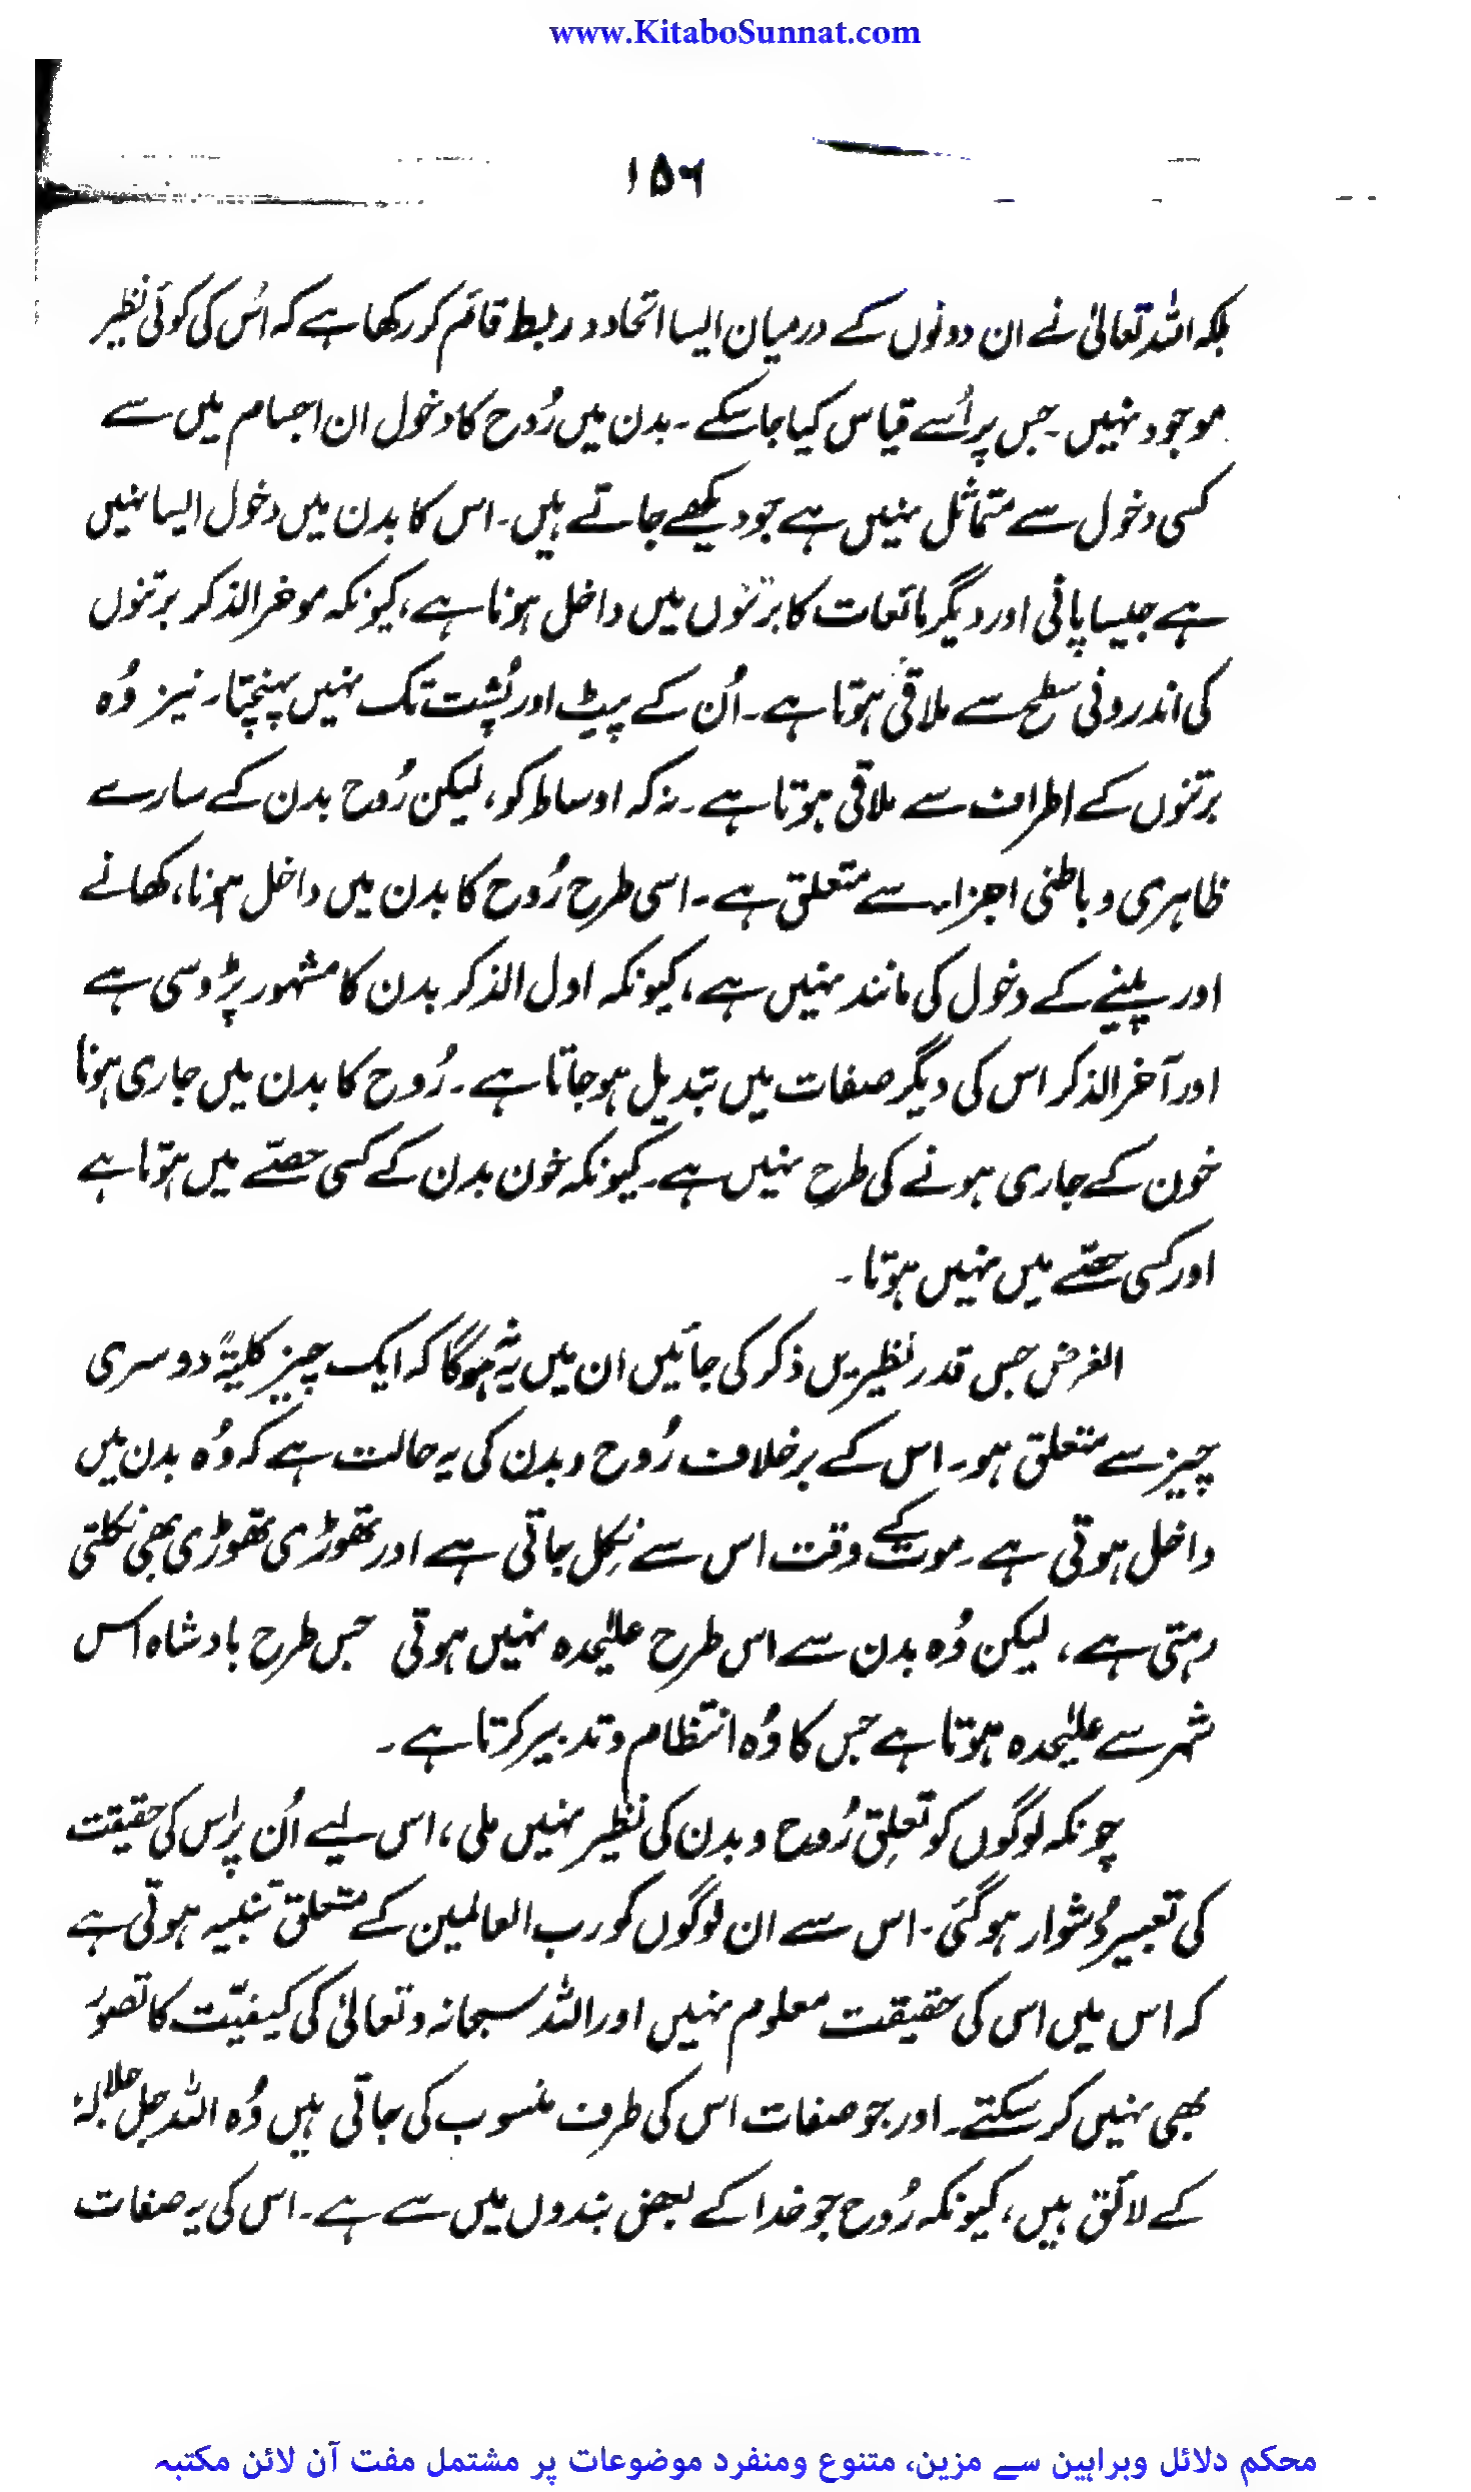 www.KitaboSunnat.com
۱۵۶
بلکہ اللہ تعالیٰ نے ان دونوں کے درمیان ایسا اتحاد و ربط قائم کر رکھا ہے کہ اُس کی کوئی نظیر
موجود نہیں۔ جس پر اُسے قیاس کیا جا سکے۔ بدن میں رُوح کا دخول ان اجسام میں سے
کسی دخول سے متماثل نہیں ہے جو دیکھے جاتے ہیں۔ اس کا بدن میں دخول ایسا نہیں
ہے جیسا پانی اور دیگر مائعات کا برتنوں میں داخل ہونا ہے، کیونکہ موخر الذکر برتنوں
کی اندرونی سطح سے ملاقی ہوتا ہے۔ اُن کے پیٹ اور پُشت تک نہیں پہنچتا۔ نیز وُہ
برتنوں کے اطراف سے ملاقی ہوتا ہے۔ نہ کہ اوساط کو، لیکن رُوح بدن کے سارے
ظاہری و باطنی اجزاء سے متعلق ہے۔ اسی طرح رُوح کا بدن میں داخل ہونا، کھانے
اور پینے کے دخول کی مانند نہیں ہے، کیونکہ اول الذکر بدن کا مشہور پڑوسی ہے
اور آخر الذکر اس کی دیگر صفات میں تبدیل ہو جاتا ہے۔ رُوح کا بدن میں جاری ہونا
خون کے جاری ہونے کی طرح نہیں ہے۔ کیونکہ خون بدن کے کسی حصّے میں ہوتا ہے
اور کسی حصّے میں نہیں ہوتا۔
الغرض جس قدر نظیریں ذکر کی جائیں ان میں یہ نہ ہو گا کہ ایک چیز کلیۃً دوسری
چیز سے متعلق ہو۔ اس کے برخلاف رُوح و بدن کی یہ حالت ہے کہ وُہ بدن میں
داخل ہوتی ہے۔ موت کے وقت اس سے نِکل جاتی ہے اور تھوڑی تھوڑی بھی نکلتی
رہتی ہے، لیکن وُہ بدن سے اس طرح علیٰحدہ نہیں ہوتی جس طرح بادشاہ اس
شہر سے علیٰحدہ ہوتا ہے جس کا وُہ انتظام و تدبیر کرتا ہے۔
چونکہ لوگوں کو تعلقِ رُوح و بدن کی نظیر نہیں ملی، اس لیے اُن پر اِس کی حقیقت
کی تعبیر دُشوار ہو گئی۔ اس سے ان لوگوں کو رب العالمین کے متعلق تنبیہ ہوتی ہے
کہ اس میں اس کی حقیقت معلوم نہیں اور اللہ سبحانہ و تعالیٰ کی کیفیّت کا تصوّر
بھی نہیں کر سکتے۔ اور جو صفات اس کی طرف منسوب کی جاتی ہیں وُہ اللہ جل جلالہٗ
کے لائق ہیں، کیونکہ رُوح جو خدا کے بعض بندوں میں سے ہے۔ اس کی یہ صفات
محکم دلائل وبراہین سے مزین، متنوع ومنفرد موضوعات پر مشتمل مفت آن لائن مکتبہ